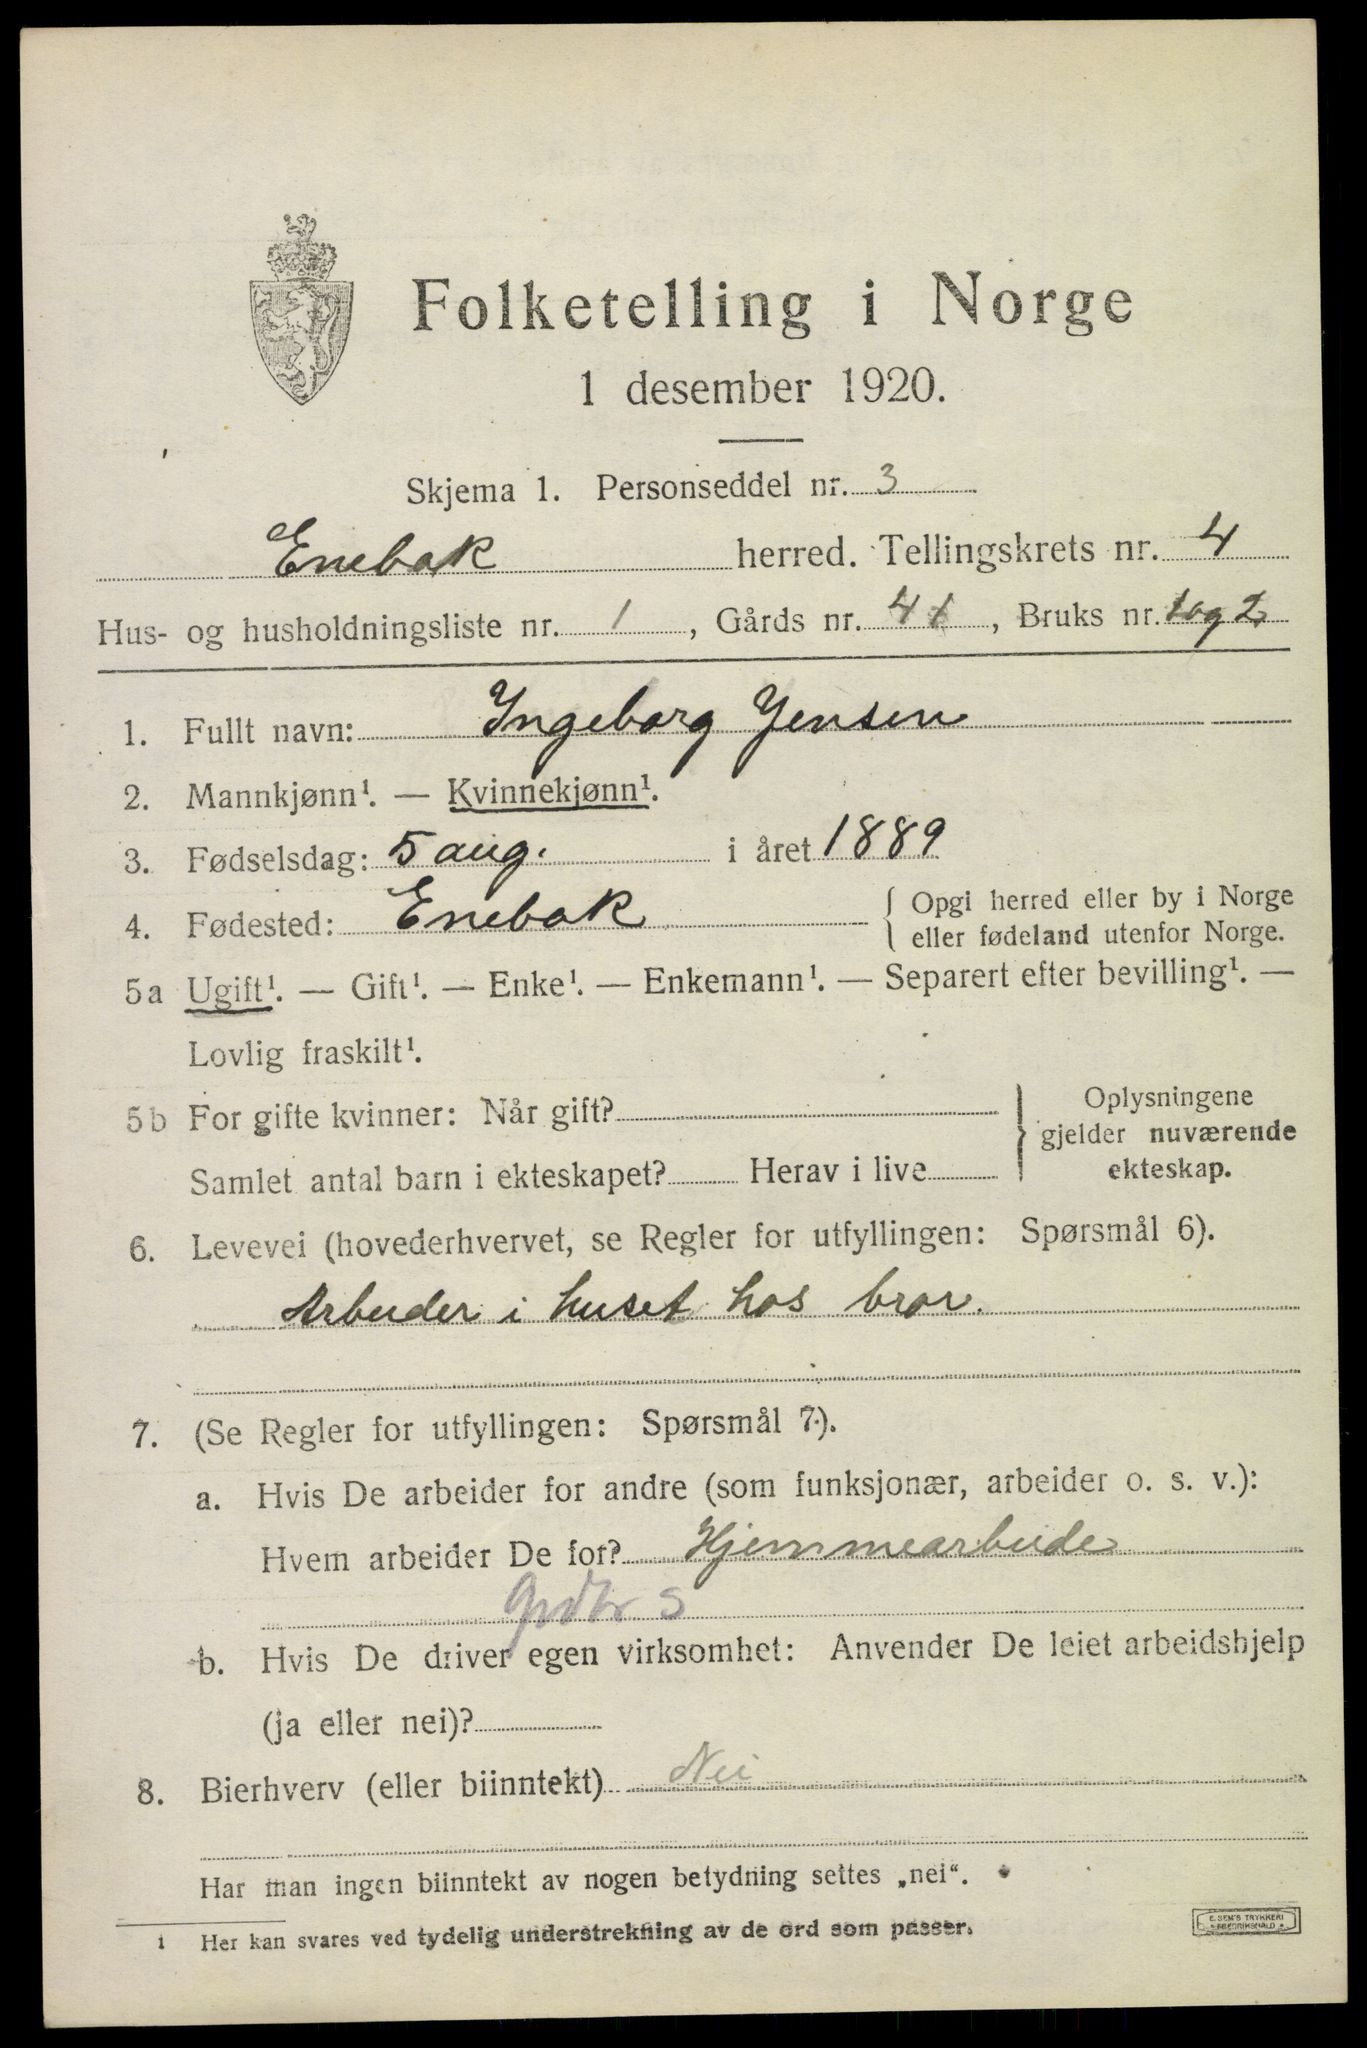 Folketelling i Norge
1 desember 1920.
Skjema 1. Personseddel nr. 3
Enebak herred. Tellingskrets nr. 4
Hus- og husholdningsliste nr. 1, Gårds nr. 41, Bruks nr. 1 og 2
1. Fullt navn: Ingeborg Jensen
2. Mannkjønn¹. — Kvinnekjønn¹.
3. Fødselsdag: 5 aug. i året 1889
4. Fødested: Enebak { Opgi herred eller by i Norge
eller fødeland utenfor Norge.
5a Ugift¹. — Gift¹. — Enke¹. — Enkemann¹. — Separert efter bevilling¹. —
Lovlig fraskilt¹.
5b For gifte kvinner: Når gift?
Samlet antal barn i ekteskapet? Herav i live
} Oplysningene
gjelder nuværende
ekteskap.
6. Levevei (hovederhvervet, se Regler for utfyllingen: Spørsmål 6).
Arbeider i huset hos bror.
7. (Se Regler for utfyllingen: Spørsmål 7).
a. Hvis De arbeider for andre (som funksjonær, arbeider o. s. v.):
Hvem arbeider De for? Hjemmearbeide
b. Hvis De driver egen virksomhet: Anvender De leiet arbeidshjelp
(ja eller nei)?
8. Bierhverv (eller biinntekt) Nei
Har man ingen biinntekt av nogen betydning settes „nei".
¹ Her kan svares ved tydelig understrekning av de ord som passer.
E. SEM'S TRYKKERI
FREDRIKSHALD